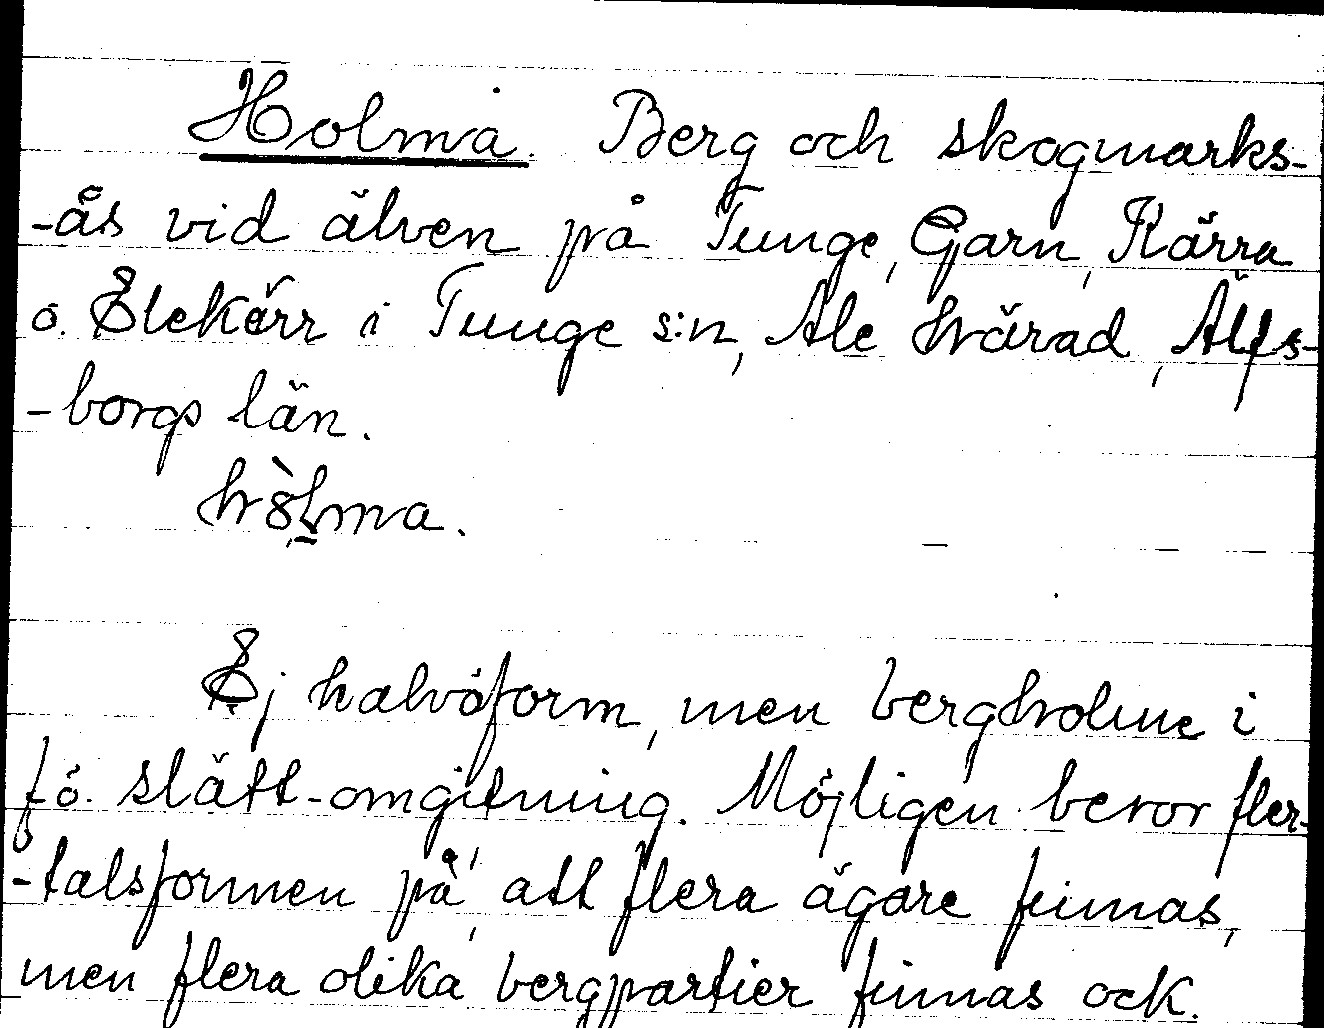 Holma. Berg och skogmarks-
-ås vid älven på Tunge, Garn, Kärra
o. Elekärr i Tunge s:n, Ale härad, Älfs-
-borgs län.
hòlma.
Ej halvöform, men bergholme i
f.ö. slätt-omgivning. Möjligen beror fler-
-talsformen på, att flera ägare finnas,
men flera olika bergpartier finnas ock.